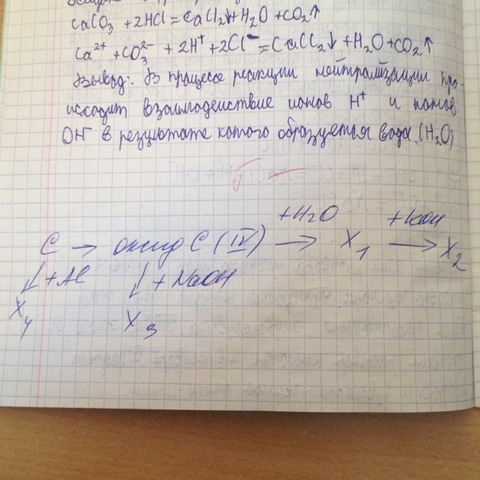 CaCO₃ + 2HCl = CaCl₂↓ + H₂O + CO₂↑
Ca²⁺ + CO₃²⁻ + 2H⁺ + 2Cl⁻ = CaCl₂↓ + H₂O + CO₂↑
Вывод: В процессе реакции нейтрализации про-
исходит взаимодействие ионов H⁺ и ионов
OH⁻ в результате котого образуется вода (H₂O)
C → оксид C (IV) → +H₂O X₁ → +KOH X₂
↓ +Al ↓ +NaOH
X₄ X₃